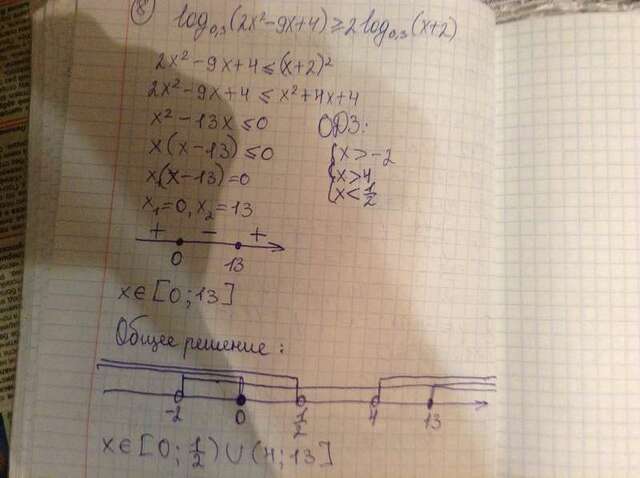 8 log₀,₃(2x²-9x+4)≥2log₀,₃(x+2)
2x²-9x+4≤(x+2)²
2x²-9x+4≤x²+4x+4
x²-13x≤0
x(x-13)≤0
x(x-13)=0
x₁=0, x₂=13
ОДЗ:
{x>-2
{x>4
{x<1/2
+ - +
0 13
x∈[0;13]
Общее решение:
-2 0 1/2 4 13
x∈[0;1/2)∪(4;13]